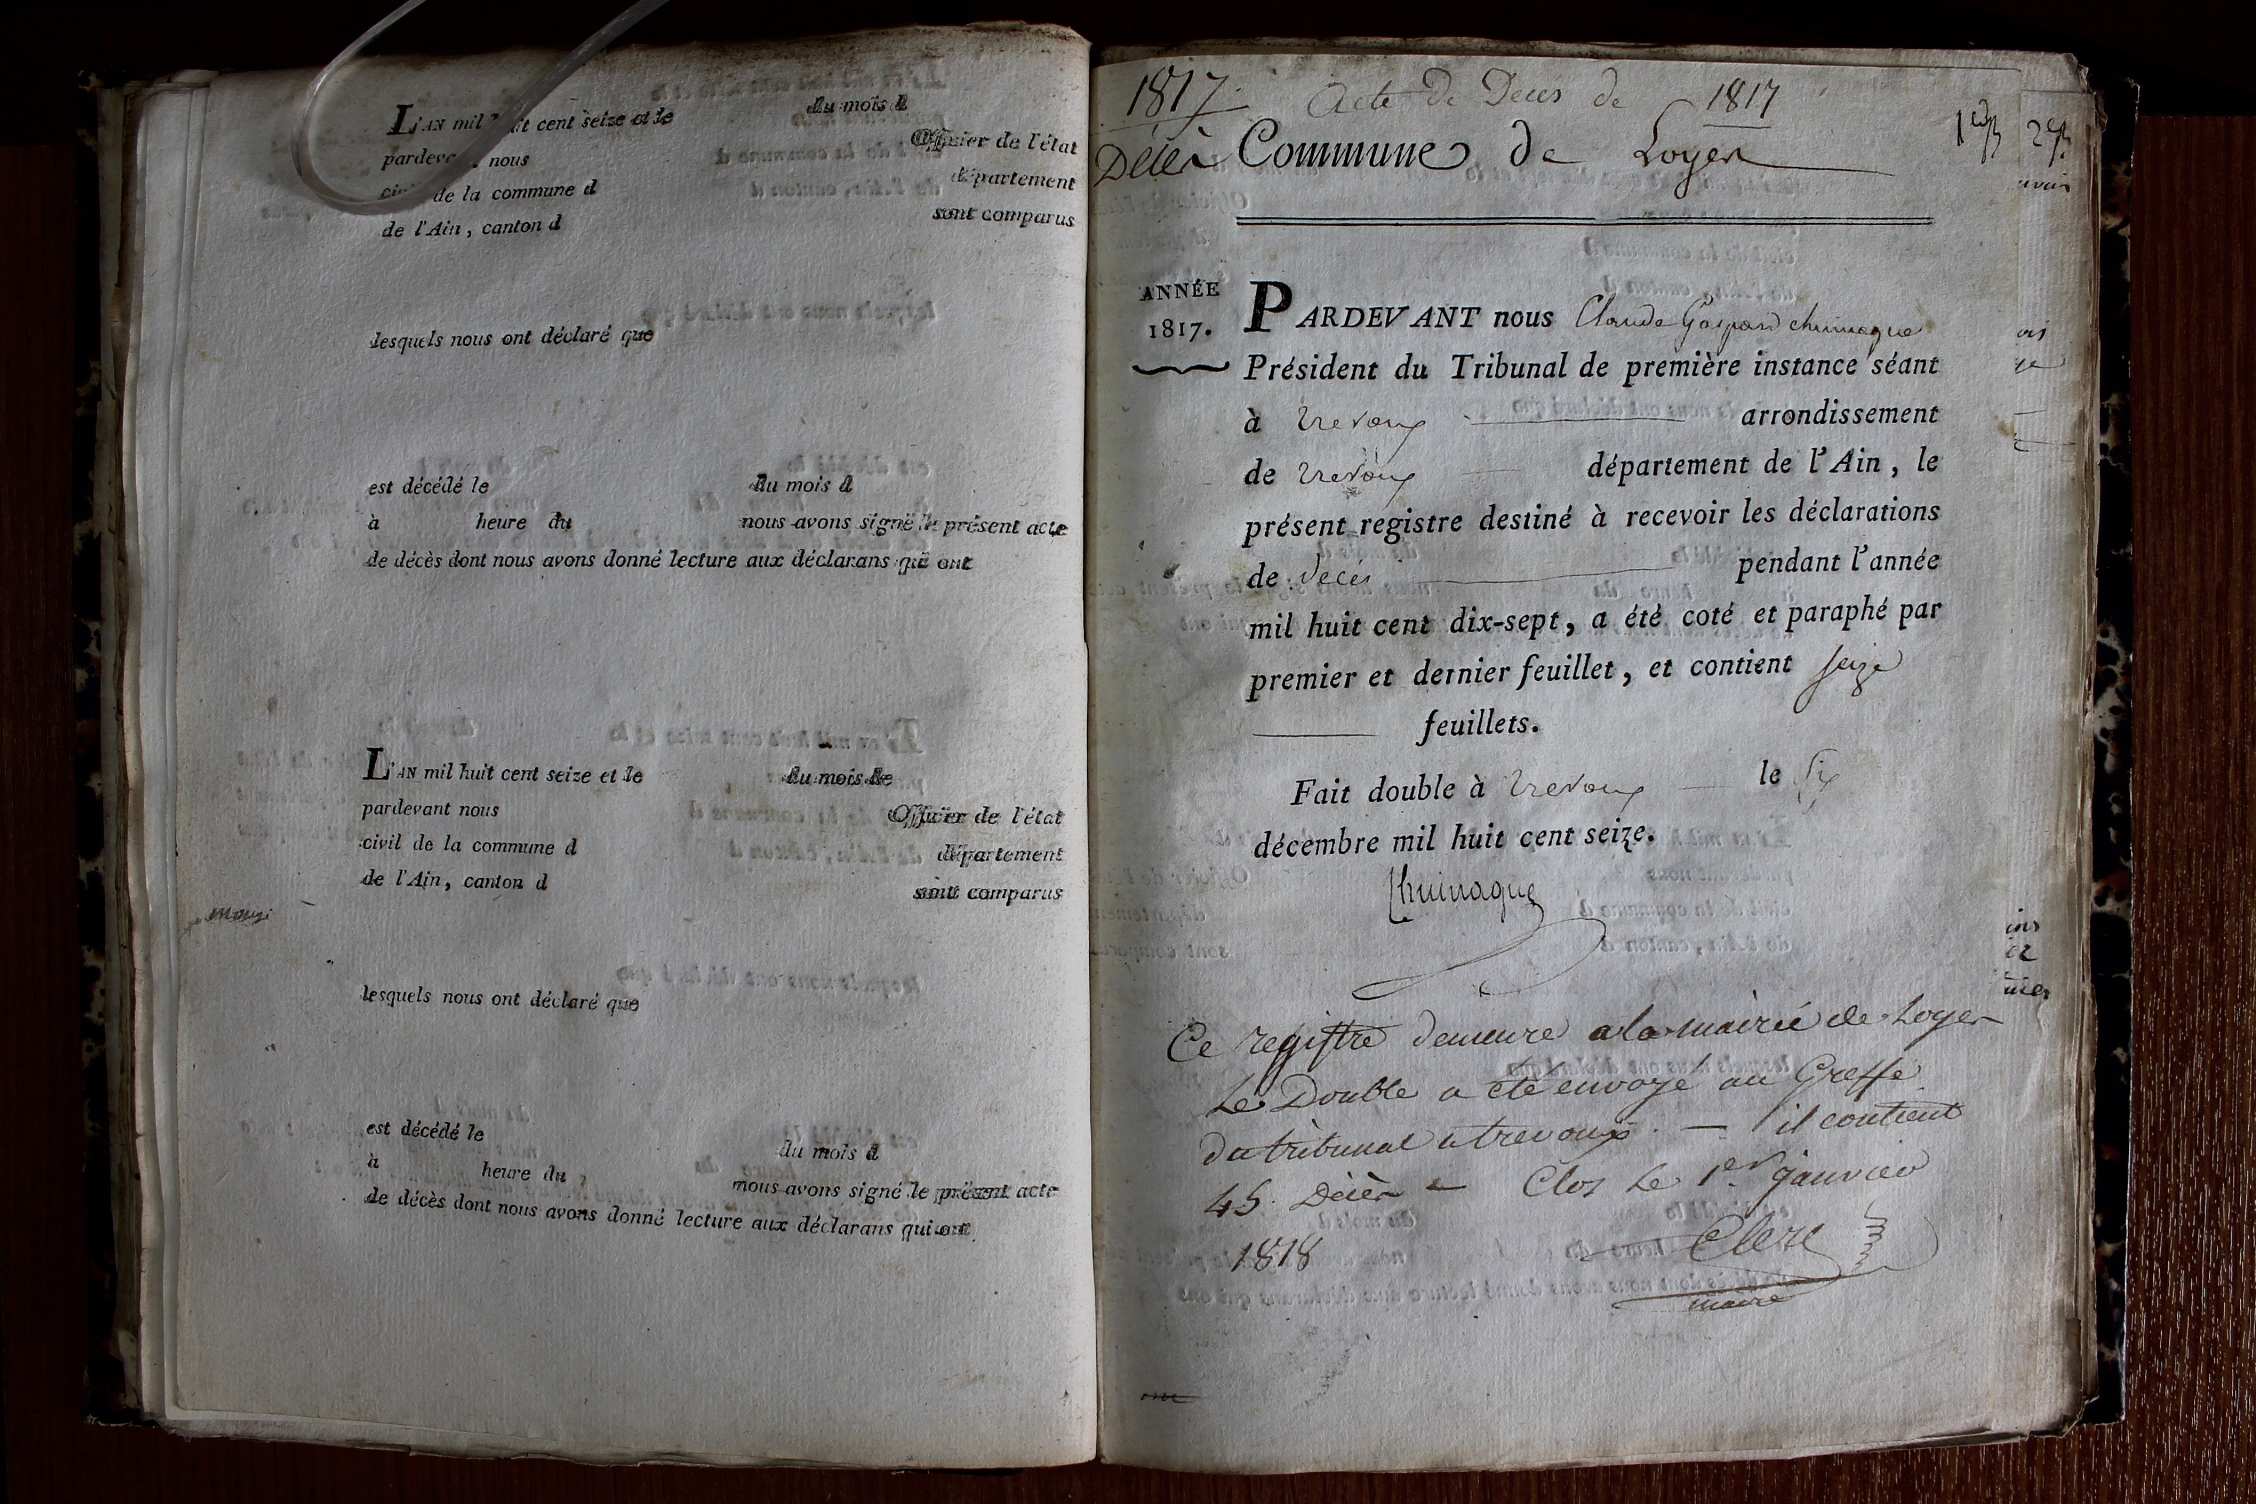 L'AN mil huit cent seize et le du mois d
pardevant nous Officier de l'état
civil de la commune d département
de l'Ain, canton d sont comparus
lesquels nous ont déclaré que
est décédé le du mois d
à heure du nous avons signé le présent acte
de décès dont nous avons donné lecture aux déclarans qui ont
L'AN mil huit cent seize et le du mois de
pardevant nous Officier de l'état
civil de la commune d département
de l'Ain, canton d sont comparus
lesquels nous ont déclaré que
est décédé le du mois d
à heure du nous avons signé le présent acte
de décès dont nous avons donné lecture aux déclarans qui ont
1817. Acte De Décès de 1817
Décès Commune de Loyes
ANNÉE
1817.
PARDEVANT nous Claude Gaspard
Président du Tribunal de première instance séant
à trevoux arrondissement
de trevoux département de l'Ain, le
présent registre destiné à recevoir les déclarations
de décès pendant l'année
mil huit cent dix-sept, a été coté et paraphé par
premier et dernier feuillet, et contient seize
feuillets.
Fait double à trevoux le six
décembre mil huit cent seize.
Ce registre demeure a la mairie de Loyes
Le Double a été envoyé au Greffe
du tribunal a trevoux. — il contient
45 Décès — Clos Le 1er janvier
1818 Clerc
maire